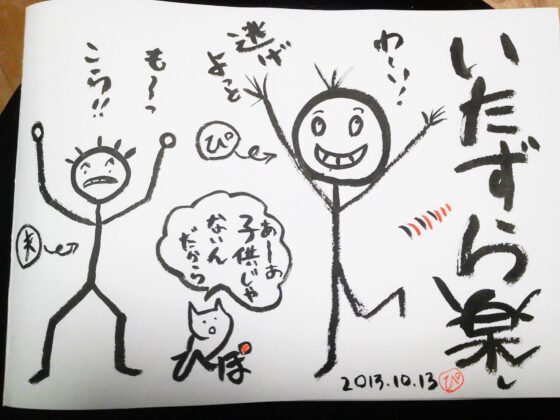 いたずら楽し
わ〜い！！
逃げ
よっと
ぴ
も〜っ
こら！！
あーあ
子供じゃ
ないん
だから
ぴぽ
2013.10.13
ぴ